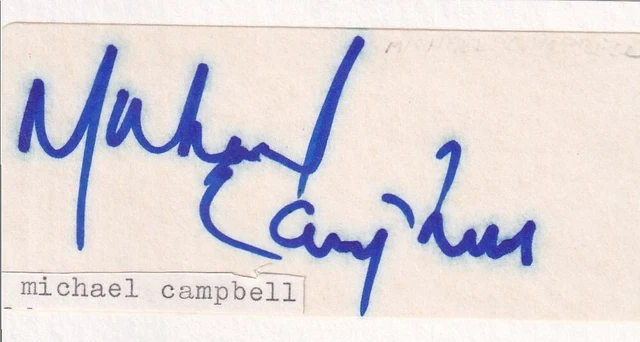 MICHAEL CAMPBELL
Michael
Campbell
michael campbell